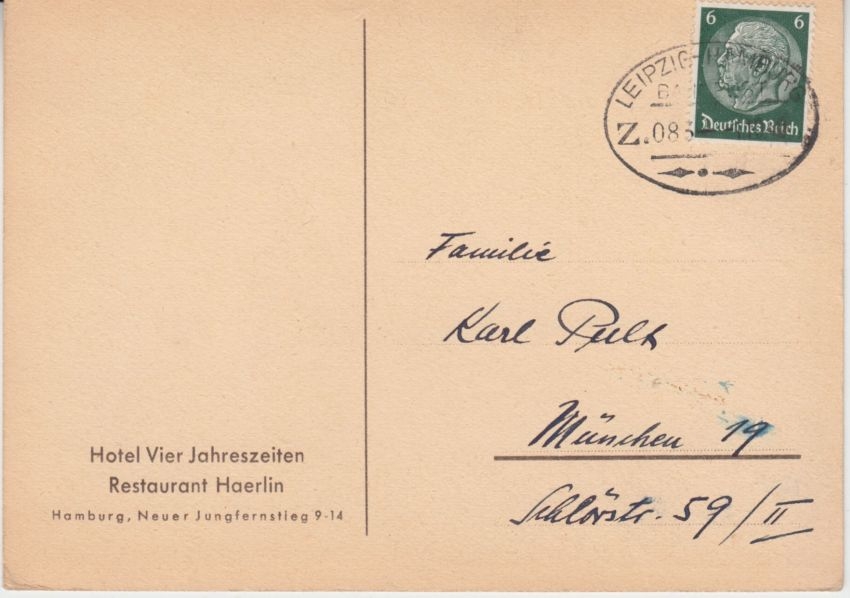 6 6
Deutsches Reich
LEIPZIG-HAMBUR
BA
Z.083
Familie
Karl Pult
München 19
Schlörstr. 59/II
Hotel Vier Jahreszeiten
Restaurant Haerlin
Hamburg, Neuer Jungfernstieg 9-14